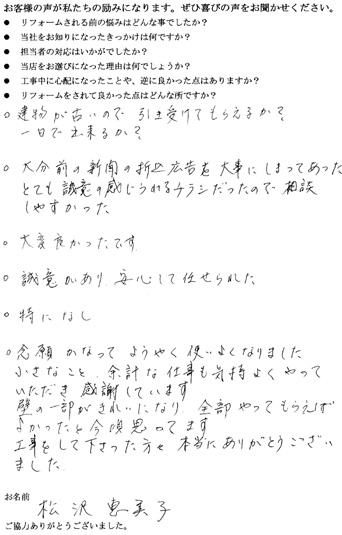 お客様の声が私たちの励みになります。ぜひ喜びの声をお聞かせください。
● リフォームされる前の悩みはどんな事でしたか?
● 当社をお知りになったきっかけは何ですか?
● 担当者の対応はいかがでしたか?
● 当店をお選びになった理由は何でしょうか?
● 工事中に心配になったことや、逆に良かった点はありますか?
● リフォームをされて良かった点はどんな所ですか?
○ 建物が古いので 引き受けてもらえるか?
一日で出来るか?
○ 大分前の新聞の折込広告を大事にしまってあった
とても誠意の感じられるチラシだったので 相談
しやすかった
○ 大変良かったです
○ 誠意があり 安心して任せられた
○ 特になし
○ 念願かなって ようやく使いよくなりました
小さなこと、余計な仕事も気持よくやって
いただき 感謝しています
壁の一部がきれいになり 全部やってもらえば
よかったと今頃思ってます
工事をして下さった方々 本当にありがとうござい
ました
お名前
松沢恵美子
ご協力ありがとうございました。